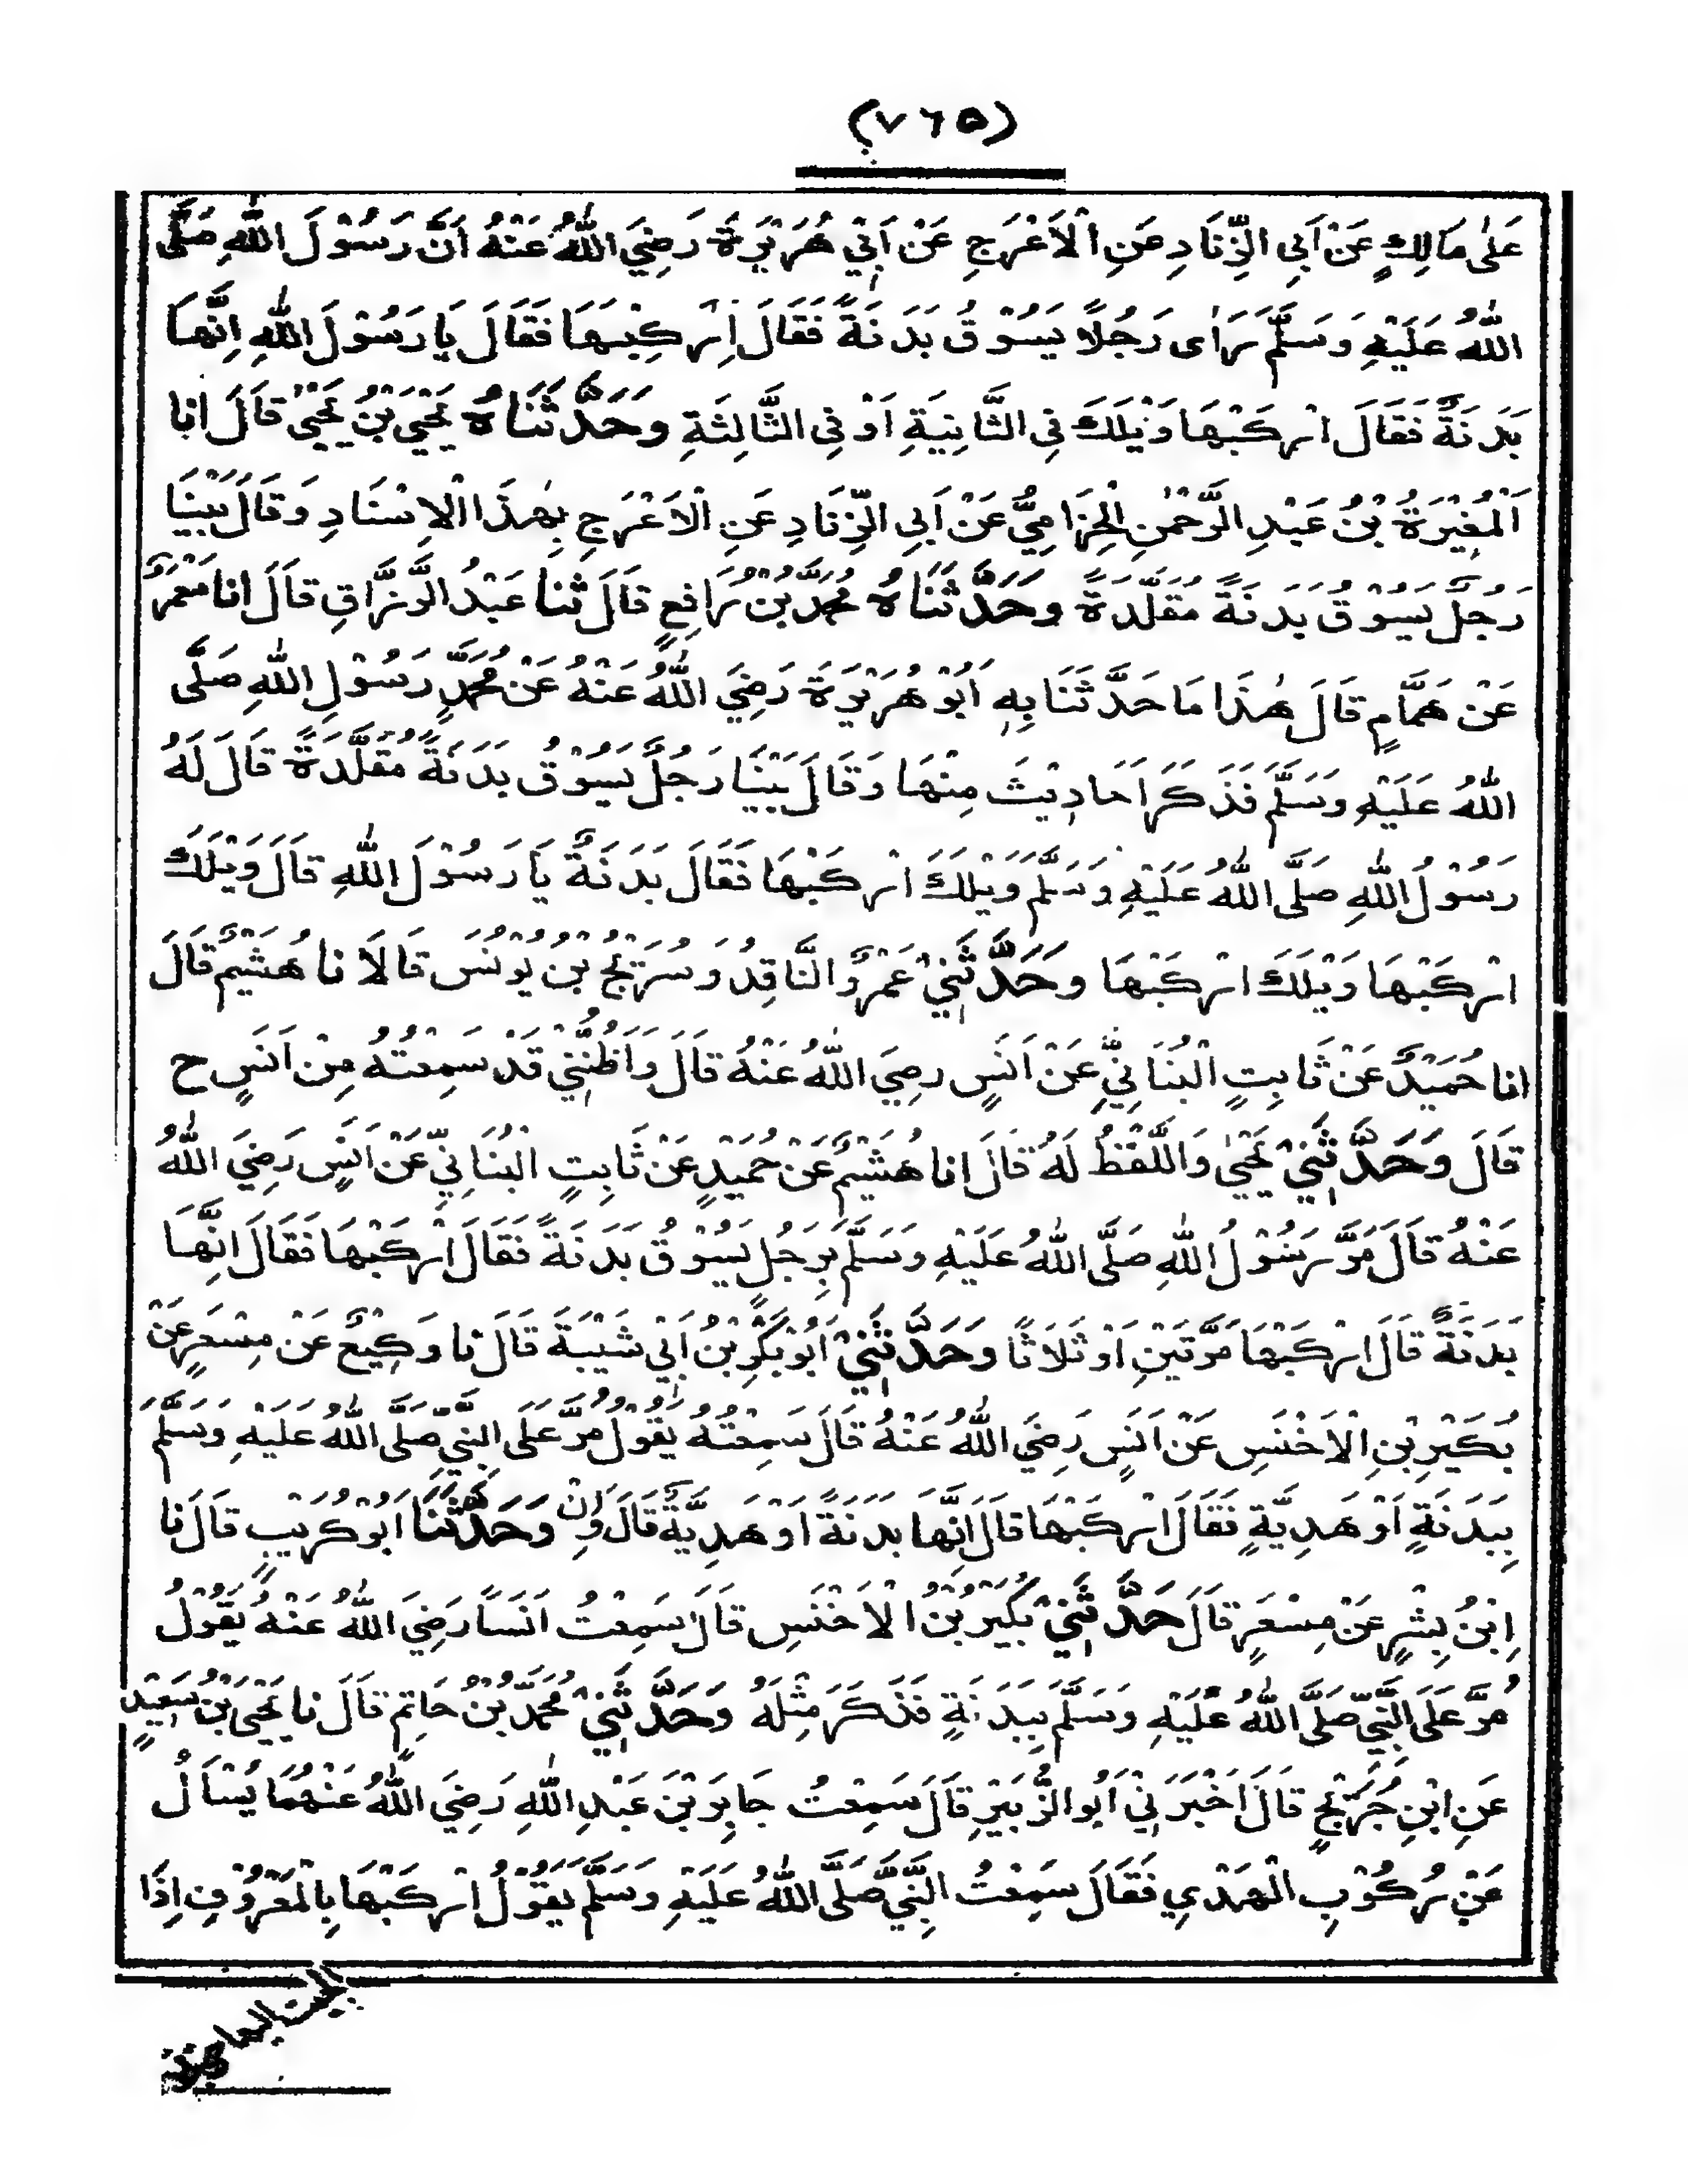 (٧٦٥)
عَلٰى مَالِكٍ عَنْ اَبِى الزِّنَادِ عَنِ الْاَعْرَجِ عَنْ اَبِيْ هُرَيْرَةَ رَضِيَ اللّٰهُ عَنْهُ اَنَّ رَسُوْلَ اللّٰهِ صَلَّى
اللّٰهُ عَلَيْهِ وَسَلَّمَ رَاٰى رَجُلًا يَسُوْقُ بَدَنَةً فَقَالَ اِرْكَبْهَا فَقَالَ يَا رَسُوْلَ اللّٰهِ اِنَّهَا
بَدَنَةٌ فَقَالَ ارْكَبْهَا وَيْلَكَ فِى الثَّانِيَةِ اَوْ فِى الثَّالِثَةِ وَحَدَّثَنَاهُ يَحْيَى بْنُ يَحْيٰى قَالَ انا
اَلْمُغِيْرَةُ بْنُ عَبْدِ الرَّحْمٰنِ الْحِزَامِيُّ عَنْ اَبِى الزِّنَادِ عَنِ الْاَعْرَجِ بِهٰذَا الْاِسْنَادِ وَقَالَ بَيْنَا
رَجُلٌ يَسُوْقُ بَدَنَةً مُقَلَّدَةً وَحَدَّثَنَاهُ مُحَمَّدُ بْنُ رَافِعٍ قَالَ ثنا عَبْدُ الرَّزَّاقِ قَالَ انا مَعْمَرٌ
عَنْ هَمَّامٍ قَالَ هٰذَا مَا حَدَّثَنَا بِهٖ اَبُوْ هُرَيْرَةَ رَضِيَ اللّٰهُ عَنْهُ عَنْ مُحَمَّدٍ رَسُوْلِ اللّٰهِ صَلَّى
اللّٰهُ عَلَيْهِ وَسَلَّمَ فَذَكَرَ اَحَادِيْثَ مِنْهَا وَقَالَ بَيْنَا رَجُلٌ يَسُوْقُ بَدَنَةً مُقَلَّدَةً قَالَ لَهُ
رَسُوْلُ اللّٰهِ صَلَّى اللّٰهُ عَلَيْهِ وَسَلَّمَ وَيْلَكَ ارْكَبْهَا فَقَالَ بَدَنَةٌ يَا رَسُوْلَ اللّٰهِ قَالَ وَيْلَكَ
ارْكَبْهَا وَيْلَكَ ارْكَبْهَا وَحَدَّثَنِيْ عَمْرٌو النَّاقِدُ وَسُرَيْجُ بْنُ يُوْنُسَ قَالَا نا هُشَيْمٌ قَالَ
انا حُمَيْدٌ عَنْ ثَابِتٍ الْبُنَانِيِّ عَنْ اَنَسٍ رَضِيَ اللّٰهُ عَنْهُ قَالَ وَاَظُنُّنِيْ قَدْ سَمِعْتُهُ مِنْ اَنَسٍ ح
قَالَ وَحَدَّثَنِيْ يَحْيٰى وَاللَّفْظُ لَهُ قَالَ انا هُشَيْمٌ عَنْ حُمَيْدٍ عَنْ ثَابِتٍ الْبُنَانِيِّ عَنْ اَنَسٍ رَضِيَ اللّٰهُ
عَنْهُ قَالَ مَرَّ رَسُوْلُ اللّٰهِ صَلَّى اللّٰهُ عَلَيْهِ وَسَلَّمَ بِرَجُلٍ يَسُوْقُ بَدَنَةً فَقَالَ ارْكَبْهَا فَقَالَ اِنَّهَا
بَدَنَةٌ قَالَ ارْكَبْهَا مَرَّتَيْنِ اَوْ ثَلَاثًا وَحَدَّثَنِيْ اَبُوْ بَكْرِ بْنُ اَبِيْ شَيْبَةَ قَالَ نا وَكِيْعٌ عَنْ مِسْعَرٍ عَنْ
بُكَيْرِ بْنِ الْاَخْنَسِ عَنْ اَنَسٍ رَضِيَ اللّٰهُ عَنْهُ قَالَ سَمِعْتُهُ يَقُوْلُ مُرَّ عَلَى النَّبِيِّ صَلَّى اللّٰهُ عَلَيْهِ وَسَلَّمَ
بِبَدَنَةٍ اَوْ هَدِيَّةٍ فَقَالَ ارْكَبْهَا قَالَ اِنَّهَا بَدَنَةٌ اَوْ هَدِيَّةٌ قَالَ وَاِنْ وَحَدَّثَنَا اَبُوْ كُرَيْبٍ قَالَ نا
اِبْنُ بِشْرٍ عَنْ مِسْعَرٍ قَالَ حَدَّثَنِيْ بُكَيْرُ بْنُ الْاَخْنَسِ قَالَ سَمِعْتُ اَنَسًا رَضِيَ اللّٰهُ عَنْهُ يَقُوْلُ
مُرَّ عَلَى النَّبِيِّ صَلَّى اللّٰهُ عَلَيْهِ وَسَلَّمَ بِبَدَنَةٍ فَذَكَرَ مِثْلَهُ وَحَدَّثَنِيْ مُحَمَّدُ بْنُ حَاتِمٍ قَالَ نا يَحْيَى بْنُ سَعِيْدٍ
عَنِ ابْنِ جُرَيْجٍ قَالَ اَخْبَرَنِيْ اَبُو الزُّبَيْرِ قَالَ سَمِعْتُ جَابِرَ بْنَ عَبْدِ اللّٰهِ رَضِيَ اللّٰهُ عَنْهُمَا يُسْاَلُ
عَنْ رُكُوْبِ الْهَدْيِ فَقَالَ سَمِعْتُ النَّبِيَّ صَلَّى اللّٰهُ عَلَيْهِ وَسَلَّمَ يَقُوْلُ ارْكَبْهَا بِالْمَعْرُوْفِ اِذَا